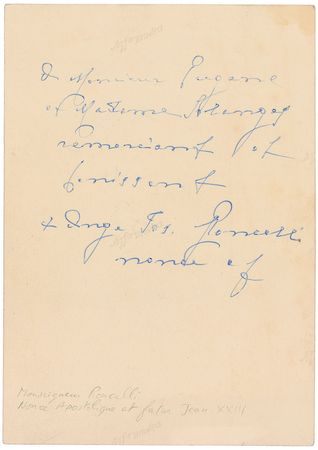 à Monsieur Eugene
et Madame
remerciant et
benissant
+ Ange Jos. Roncalli
nonce ap
Monseigneur Roncalli
Nonce Apostolique et futur Jean XXIII